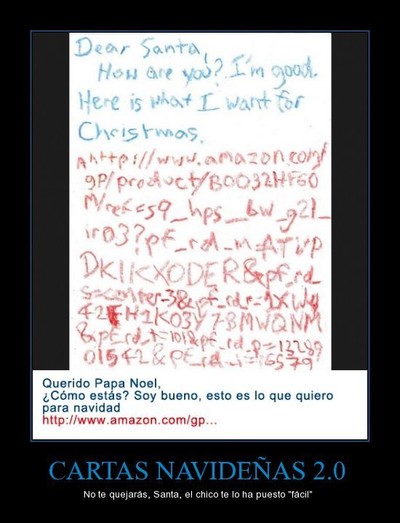 Dear Santa,
How are you? I'm good.
Here is what I want for
Christmas.
Ahttp://www.amazon.com/
gp/product/B0032HF60
M/ref=s9_hps_bw_g21_
ir03?pf_rd_m=ATVP
DKIKX0DER&pf_rd_
s=center-3&pf_rd_r=1XWY
42EH1K03Y7BMWQNM
&pf_rd_t=101&pf_rd_p=13289
01542&pf_rd_i=16579
Querido Papa Noel,
¿Cómo estás? Soy bueno, esto es lo que quiero
para navidad
http://www.amazon.com/gp...
CARTAS NAVIDEÑAS 2.0
No te quejarás, Santa, el chico te lo ha puesto "fácil"